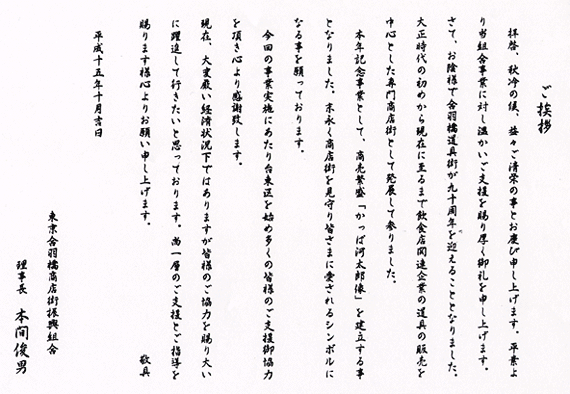 ご挨拶
拝啓、秋冷の候、益々ご清栄の事とお慶び申し上げます。平素よ
り当組合事業に対し温かいご支援を賜り厚く御礼を申し上げます。
さて、お陰様で合羽橋道具街が九十周年を迎えることとなりました。
大正時代の初めから現在に至るまで飲食店関連企業の道具の販売を
中心とした専門商店街として発展して参りました。
本年記念事業として、商売繁盛「かっぱ河太郎像」を建立する事
となりました。末永く商店街を見守り皆さまに愛されるシンボルに
なる事を願っております。
今回の事業実施にあたり台東区を始め多くの皆様のご支援御協力
を頂き心より感謝致します。
現在、大変厳い経済状況下ではありますが皆様のご協力を賜り大い
に躍進して行きたいと思っております。尚一層のご支援とご指導を
賜ります様心よりお願い申し上げます。
敬具
平成十五年十月吉日
東京合羽橋商店街振興組合
理事長 本間俊男